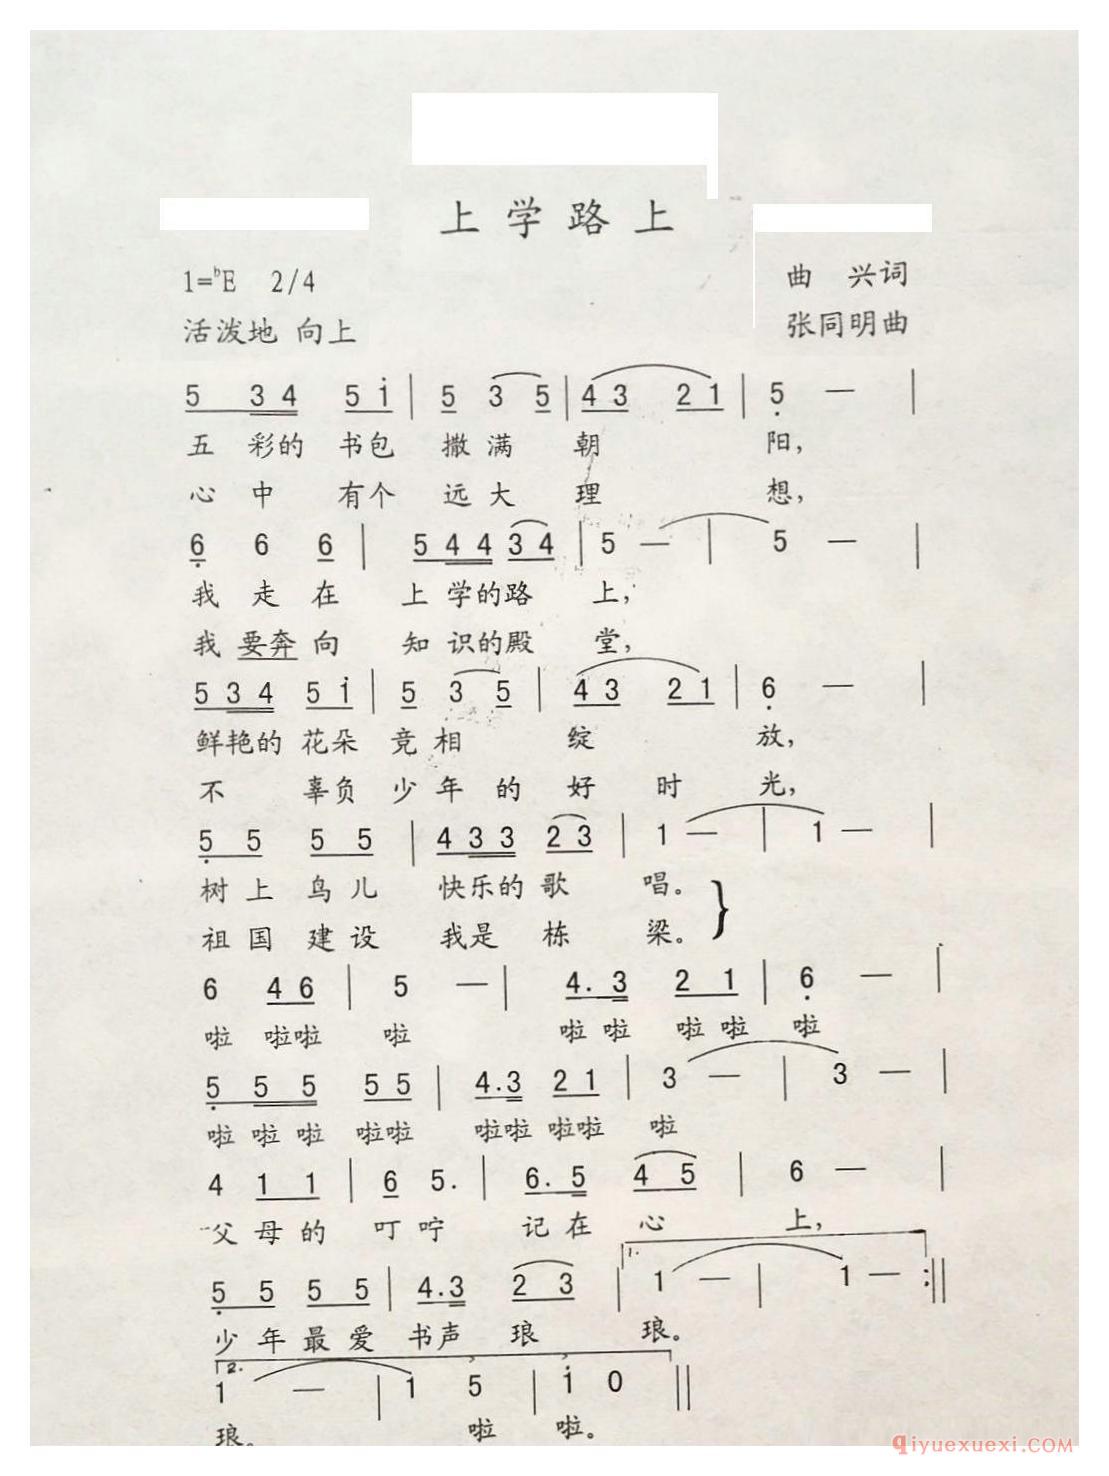 上学路上
1=ᵇE 2/4
曲 兴词
活泼地 向上
张同明曲
5 3 4 5 i | 5 3 5 | 4 3 2 1 | 5 — |
五 彩的 书包 撒 满 朝 阳,
心 中 有个 远 大 理 想,
6 6 6 | 5 4 4 3 4 | 5 — | 5 — |
我 走 在 上 学的路 上,
我 要奔 向 知 识的殿 堂,
5 3 4 5 i | 5 3 5 | 4 3 2 1 | 6 — |
鲜艳的 花朵 竞 相 绽 放,
不 辜负 少 年 的 好 时 光,
5 5 5 5 | 4 3 3 2 3 | 1 — | 1 — |
树 上 鸟 儿 快乐的 歌 唱。
祖 国 建 设 我是 栋 梁。
6 4 6 | 5 — | 4. 3 2 1 | 6 — |
啦 啦啦 啦 啦 啦 啦 啦 啦
5 5 5 5 5 | 4. 3 2 1 | 3 — | 3 — |
啦 啦 啦 啦啦 啦啦 啦啦 啦
4 1 1 | 6 5. | 6. 5 4 5 | 6 — |
父 母 的 叮 咛 记 在 心 上,
1.
5 5 5 5 | 4. 3 2 3 | 1 — | 1 — :||
少 年 最 爱 书声 琅 琅。
2.
1 — | 1 5 | i 0 ||
琅。 啦 啦。
qiyuexuexi.COM